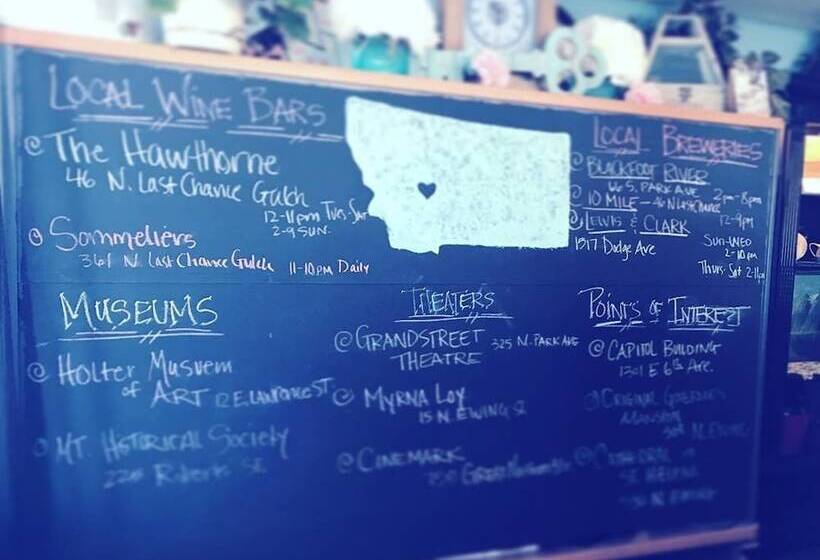 Local Wine Bars
@ The Hawthorne
46 N. Last Chance Gulch
12-11pm Tues-Sat
2-9 Sun.
@ Sommeliers
361 N. Last Chance Gulch 11-10pm Daily
Local Breweries
@ Blackfoot River
66 S. Park Ave 2pm-8pm
@ 10 Mile - 46 N Last Chance
12-9pm
@ Lewis & Clark
1317 Dodge Ave
Sun-Wed
2-10pm
Thurs-Sat 2-11pm
Museums
@ Holter Museum
of Art 12 E. Lawrence St
@ Mt. Historical Society
Roberts St.
Theaters
@ Grandstreet
Theatre 325 N. Park Ave
@ Myrna Loy
15 N. Ewing St
@ Cinemark
Great Northern
Points of Interest
@ Capitol Building
1301 E 6th Ave.
@ Original Governors
Mansion
304 N. Ewing
@ Cathedral of
St. Helena
N. Ewing